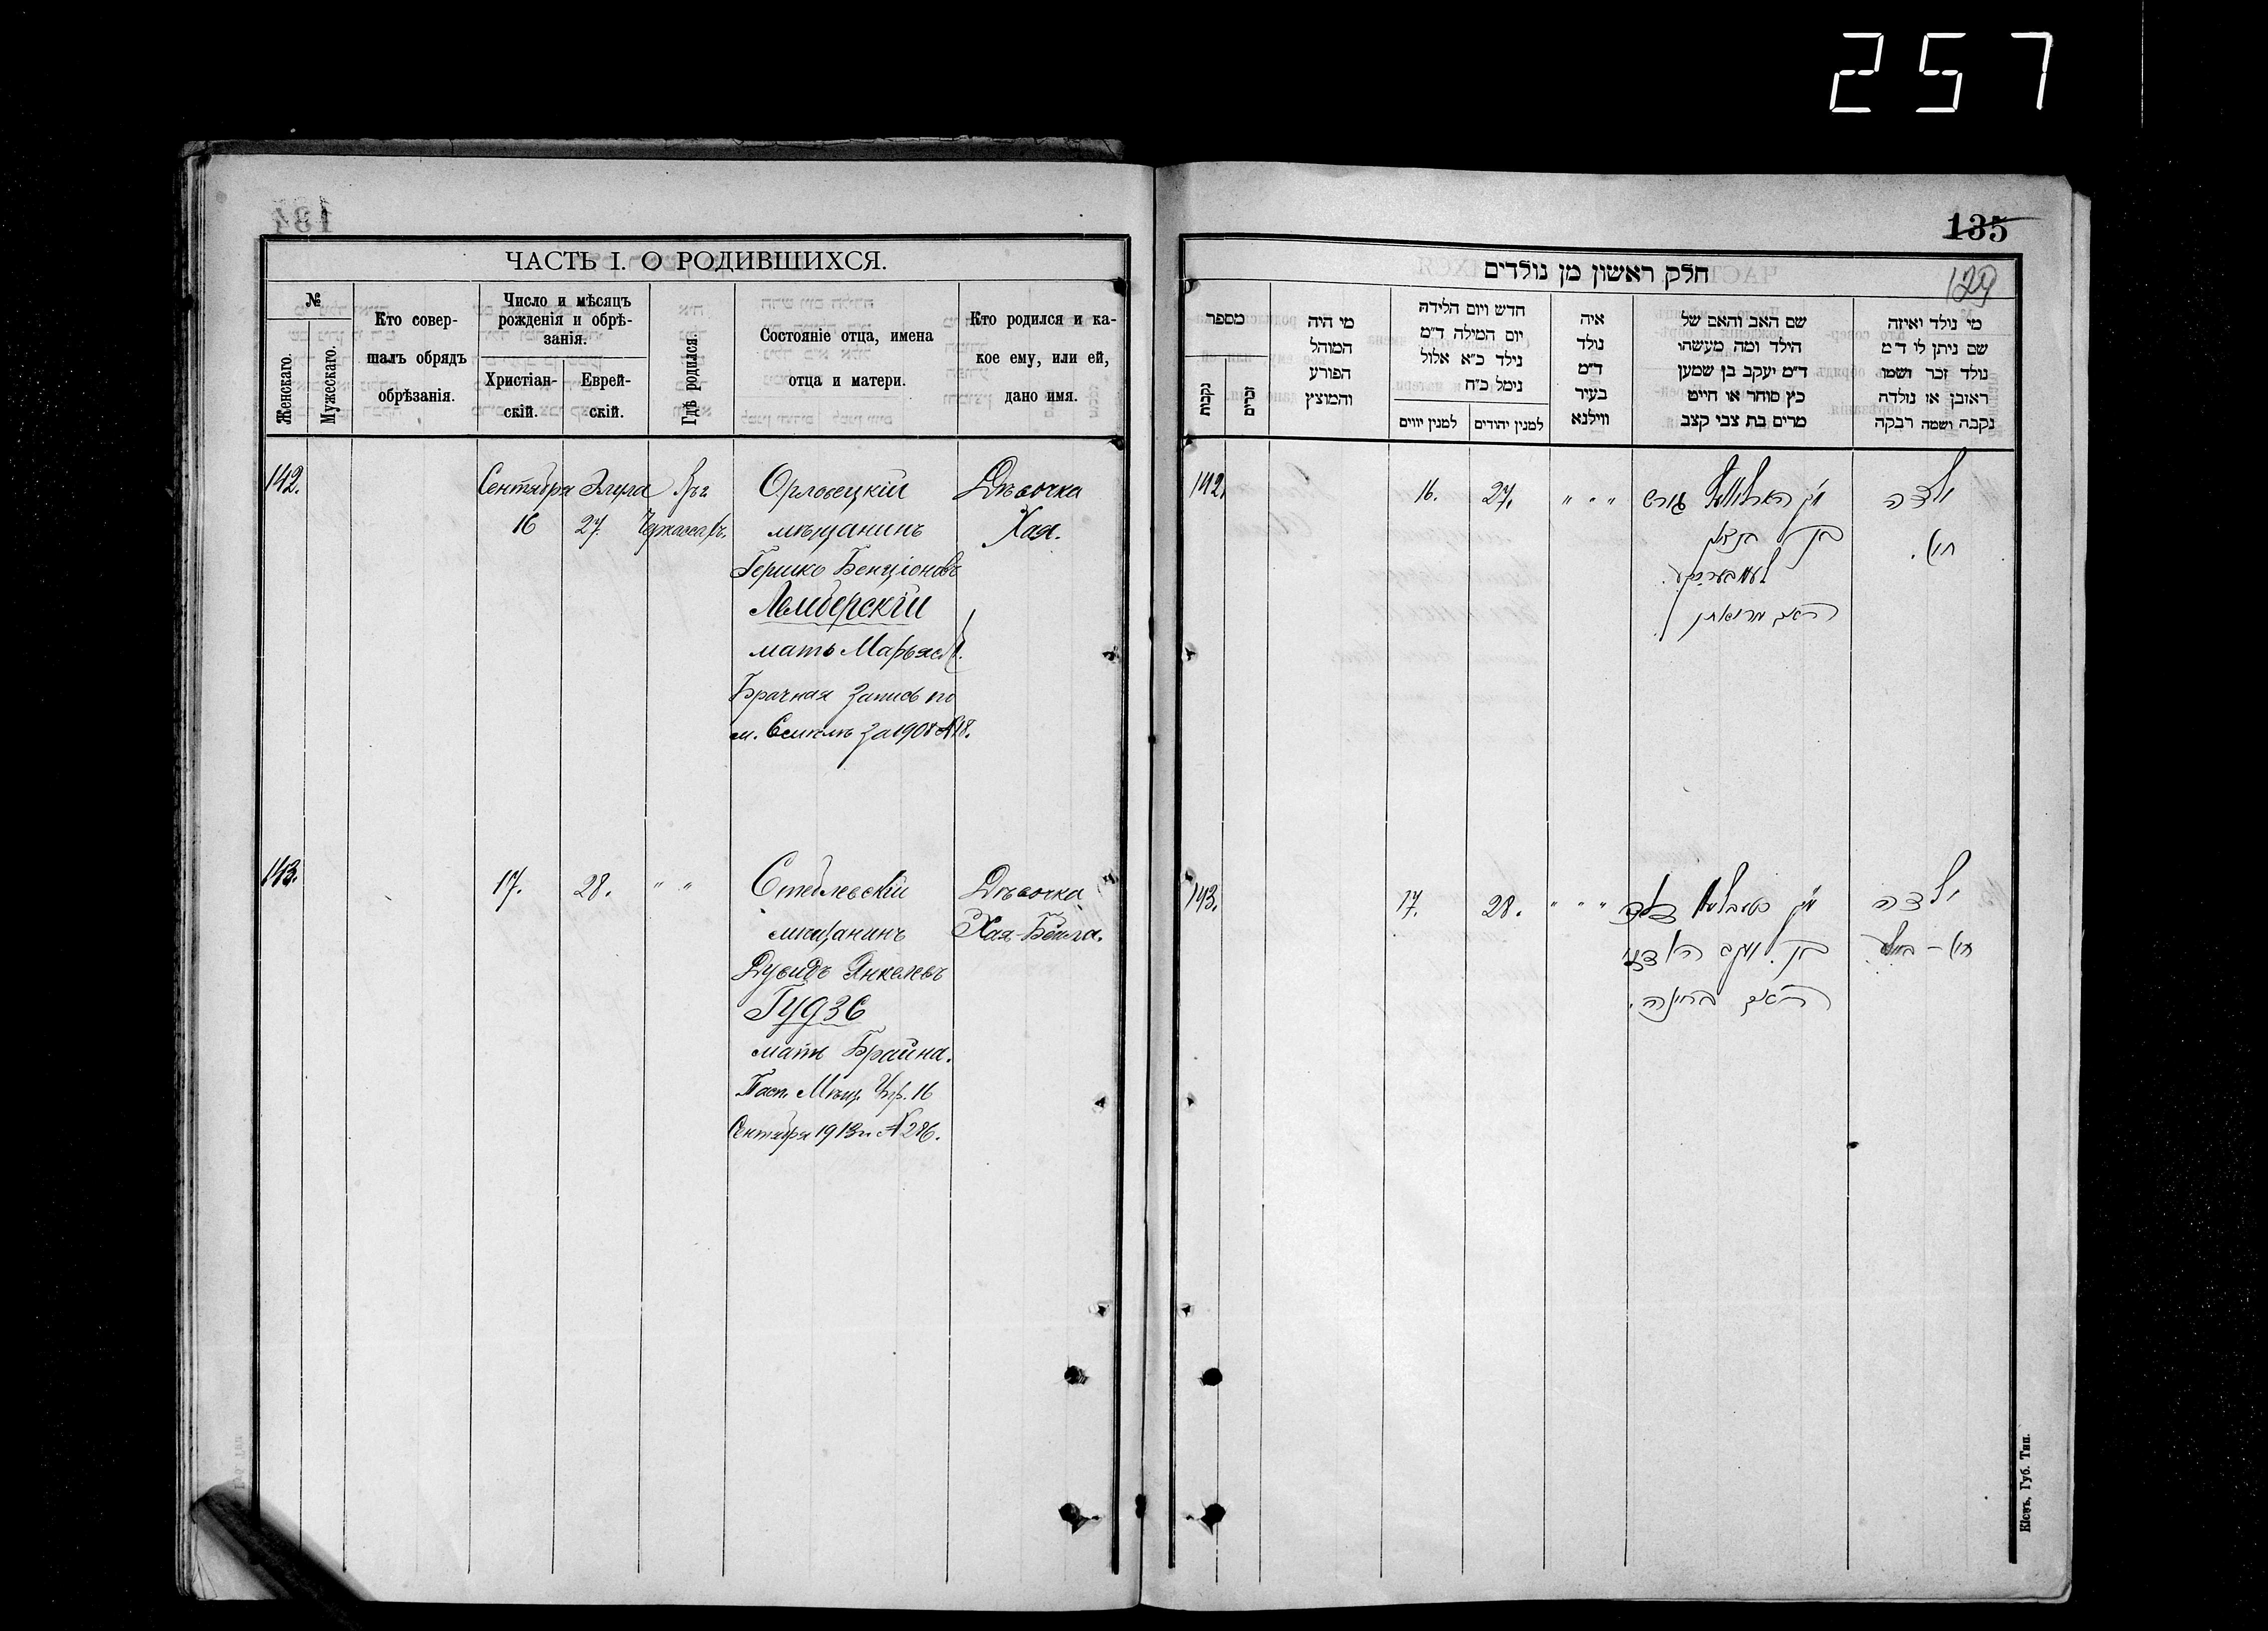 257
134
ЧАСТЬ I. О РОДИВШИХСЯ.
№
Женскаго.
Мужескаго.
Кто совер-
шалъ обрядъ
обрѣзанія.
Число и мѣсяцъ
рожденія и обрѣ-
занія.
Христіан-
скій.
Еврей-
скій.
Гдѣ родился.
Состояніе отца, имена
отца и матери.
Кто родился и ка-
кое ему, или ей,
дано имя.
142.
Сентября Элула
16 27.
Черкассахъ.
Орловецкій
мѣщанинъ
Гершко Бенціоновъ
Лемберскій
мать Марьяс
Брачная запись по
м. за 1908 №18.
Дѣвочка
Хая.
143.
17. 28. " "
Стеблевскій
мѣщанинъ
Дувидъ Янкелевъ
Гудзе
мать Брайна.
Пасп. Мѣщ. Упр. 16
Сентября 1913 г. № 286.
Дѣвочка
Хая-Бейла.
135
129
חלק ראשון מן נולדים
מספר
נקבות
זכרים
מי היה
המוהל
הפורע
והמוצץ
חדש ויום הלידה
יום המילה ד"מ
נילד כ"א אלול
נימל כ"ח
למנין יווים
למנין יהודים
איה
נולד
ד"מ
בעיר
ווילנא
שם האב והאם של
הילד ומה מעשהו
ד"מ יעקב בן שמען
כץ סוחר או חייט
מרים בת צבי קצב
מי נולד ואיזה
שם ניתן לו ד"מ
נולד זכר ושמו
ראובן או נולדה
נקבה ושמה רבקה
142.
16. 27. " " "
בן בן ציון
לעמבערסקי.
ילדה
חיה.
143.
17. 28. " " "
בן יעקב
האם בריינה.
ילדה
חיה-ביילע
Кіевъ, Губ. Тип.